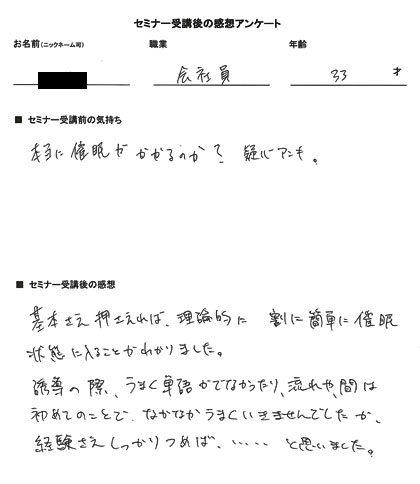 セミナー受講後の感想アンケート
お名前(ニックネーム可) 職業 年齢
会社員 33 才
■ セミナー受講前の気持ち
本当に催眠がかかるのか? 疑心アンキ。
■ セミナー受講後の感想
基本さえ押さえれば、理論的に 割に簡単に催眠
状態に入ることがわかりました。
誘導の際、うまく単語がでなかったり、流れや、間は
初めてのことで、なかなかうまくいきませんでしたが、
経験さえしっかりつめば、‥‥‥ と思いました。